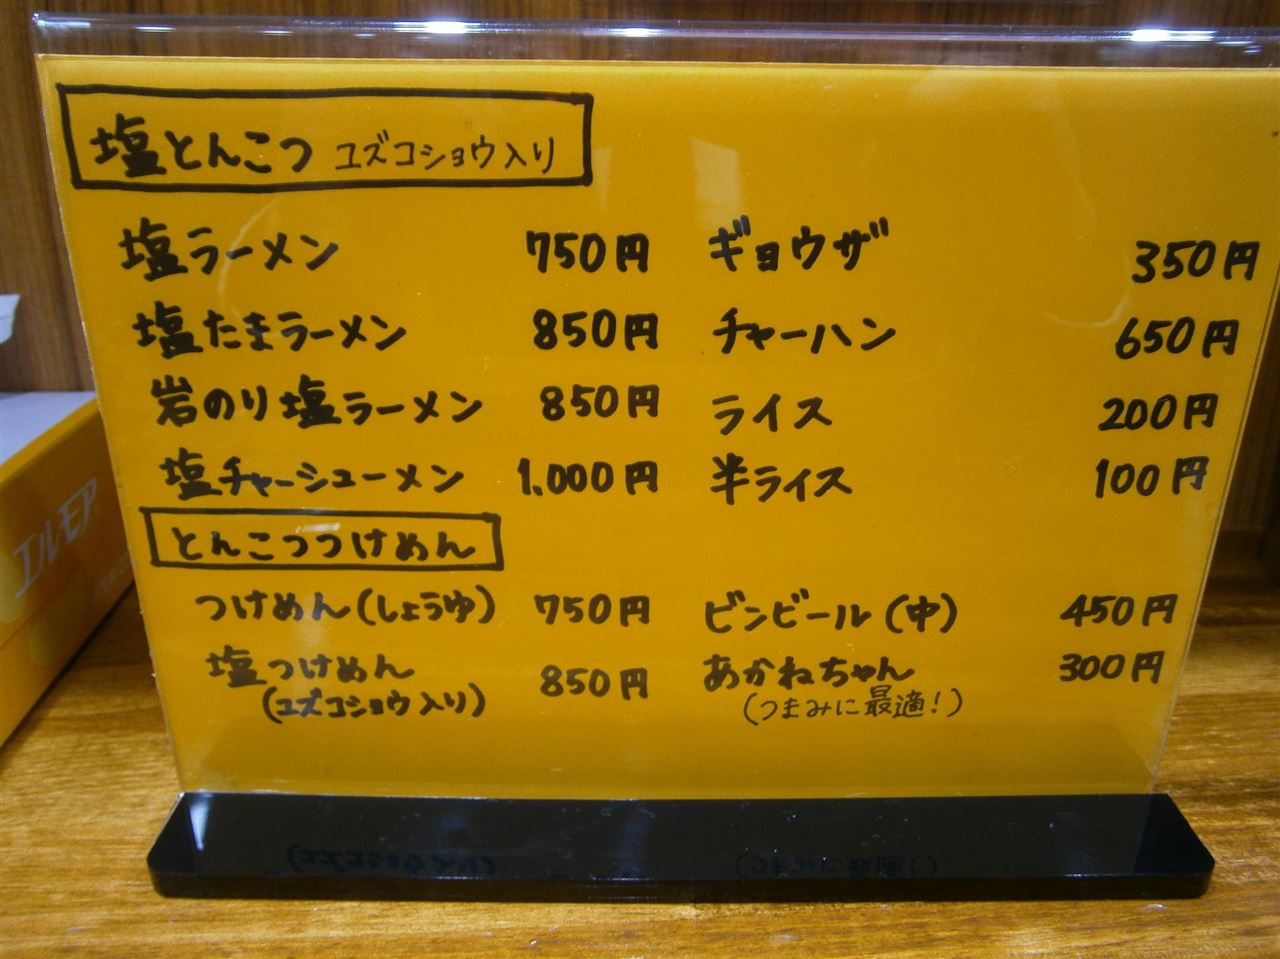 塩とんこつ ユズコショウ入り
塩ラーメン 750円
塩たまラーメン 850円
岩のり塩ラーメン 850円
塩チャーシューメン 1.000円
とんこつつけめん
つけめん(しょうゆ) 750円
塩つけめん 850円
(ユズコショウ入り)
ギョウザ 350円
チャーハン 650円
ライス 200円
半ライス 100円
ビンビール(中) 450円
あかねちゃん 300円
(つまみに最適!)
エルモア